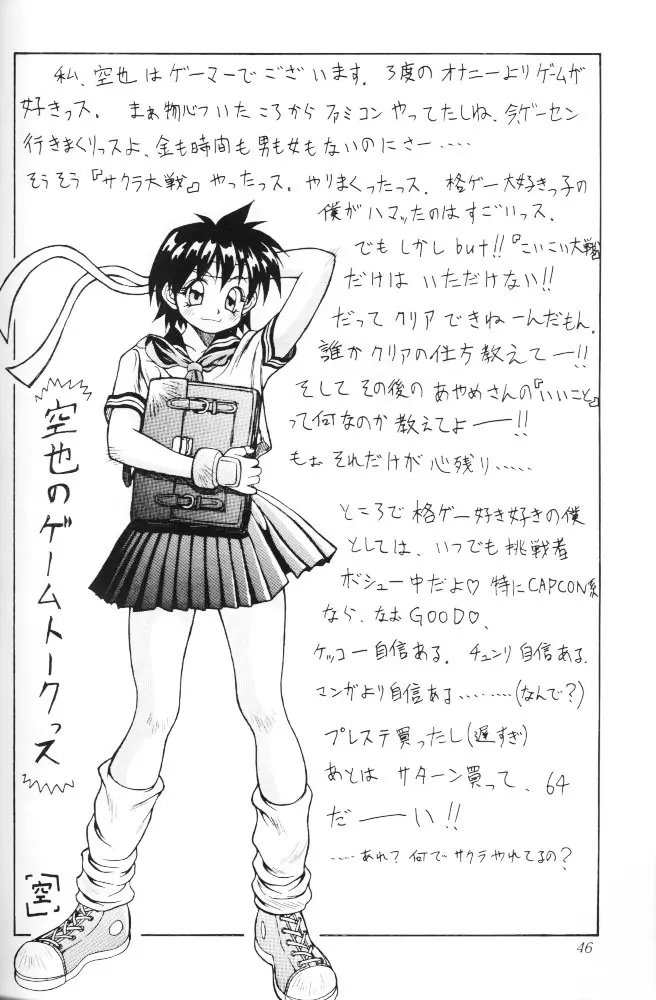 私、空也はゲーマーでございます。3度のオナニーよりゲームが
好きっス。まぁ物心ついたころからファミコンやってたしね、今、ゲーセン
行きまくりっスよ、金も時間も男も女もないのにさー‥‥‥
そうそう『サクラ大戦』やったっス。やりまくったっス。格ゲー大好きっ子の
僕がハマッたのはすごいっス。
でもしかしbut!!『こいこい大戦』
だけはいただけない!!
だってクリアできねーんだもん。
誰かクリアの仕方教えてー!!
そしてその後のあやめさんの『いいこと』
って何なのか教えてよー!!
もぉそれだけが心残り‥‥‥
ところで格ゲー好き好きの僕
としては、いつでも挑戦者
ボシュー中だよ♡特にCAPCON系
なら、なおGOOD♡、
ケッコー自信ある。チュンリ自信ある。
マンガより自信ある‥‥‥‥(なんで?)
プレステ買ったし(遅すぎ)
あとはサターン買って、64
だーい!!
‥‥あれ?何でサクラやれてるの?
空也のゲームトークっス
空
46